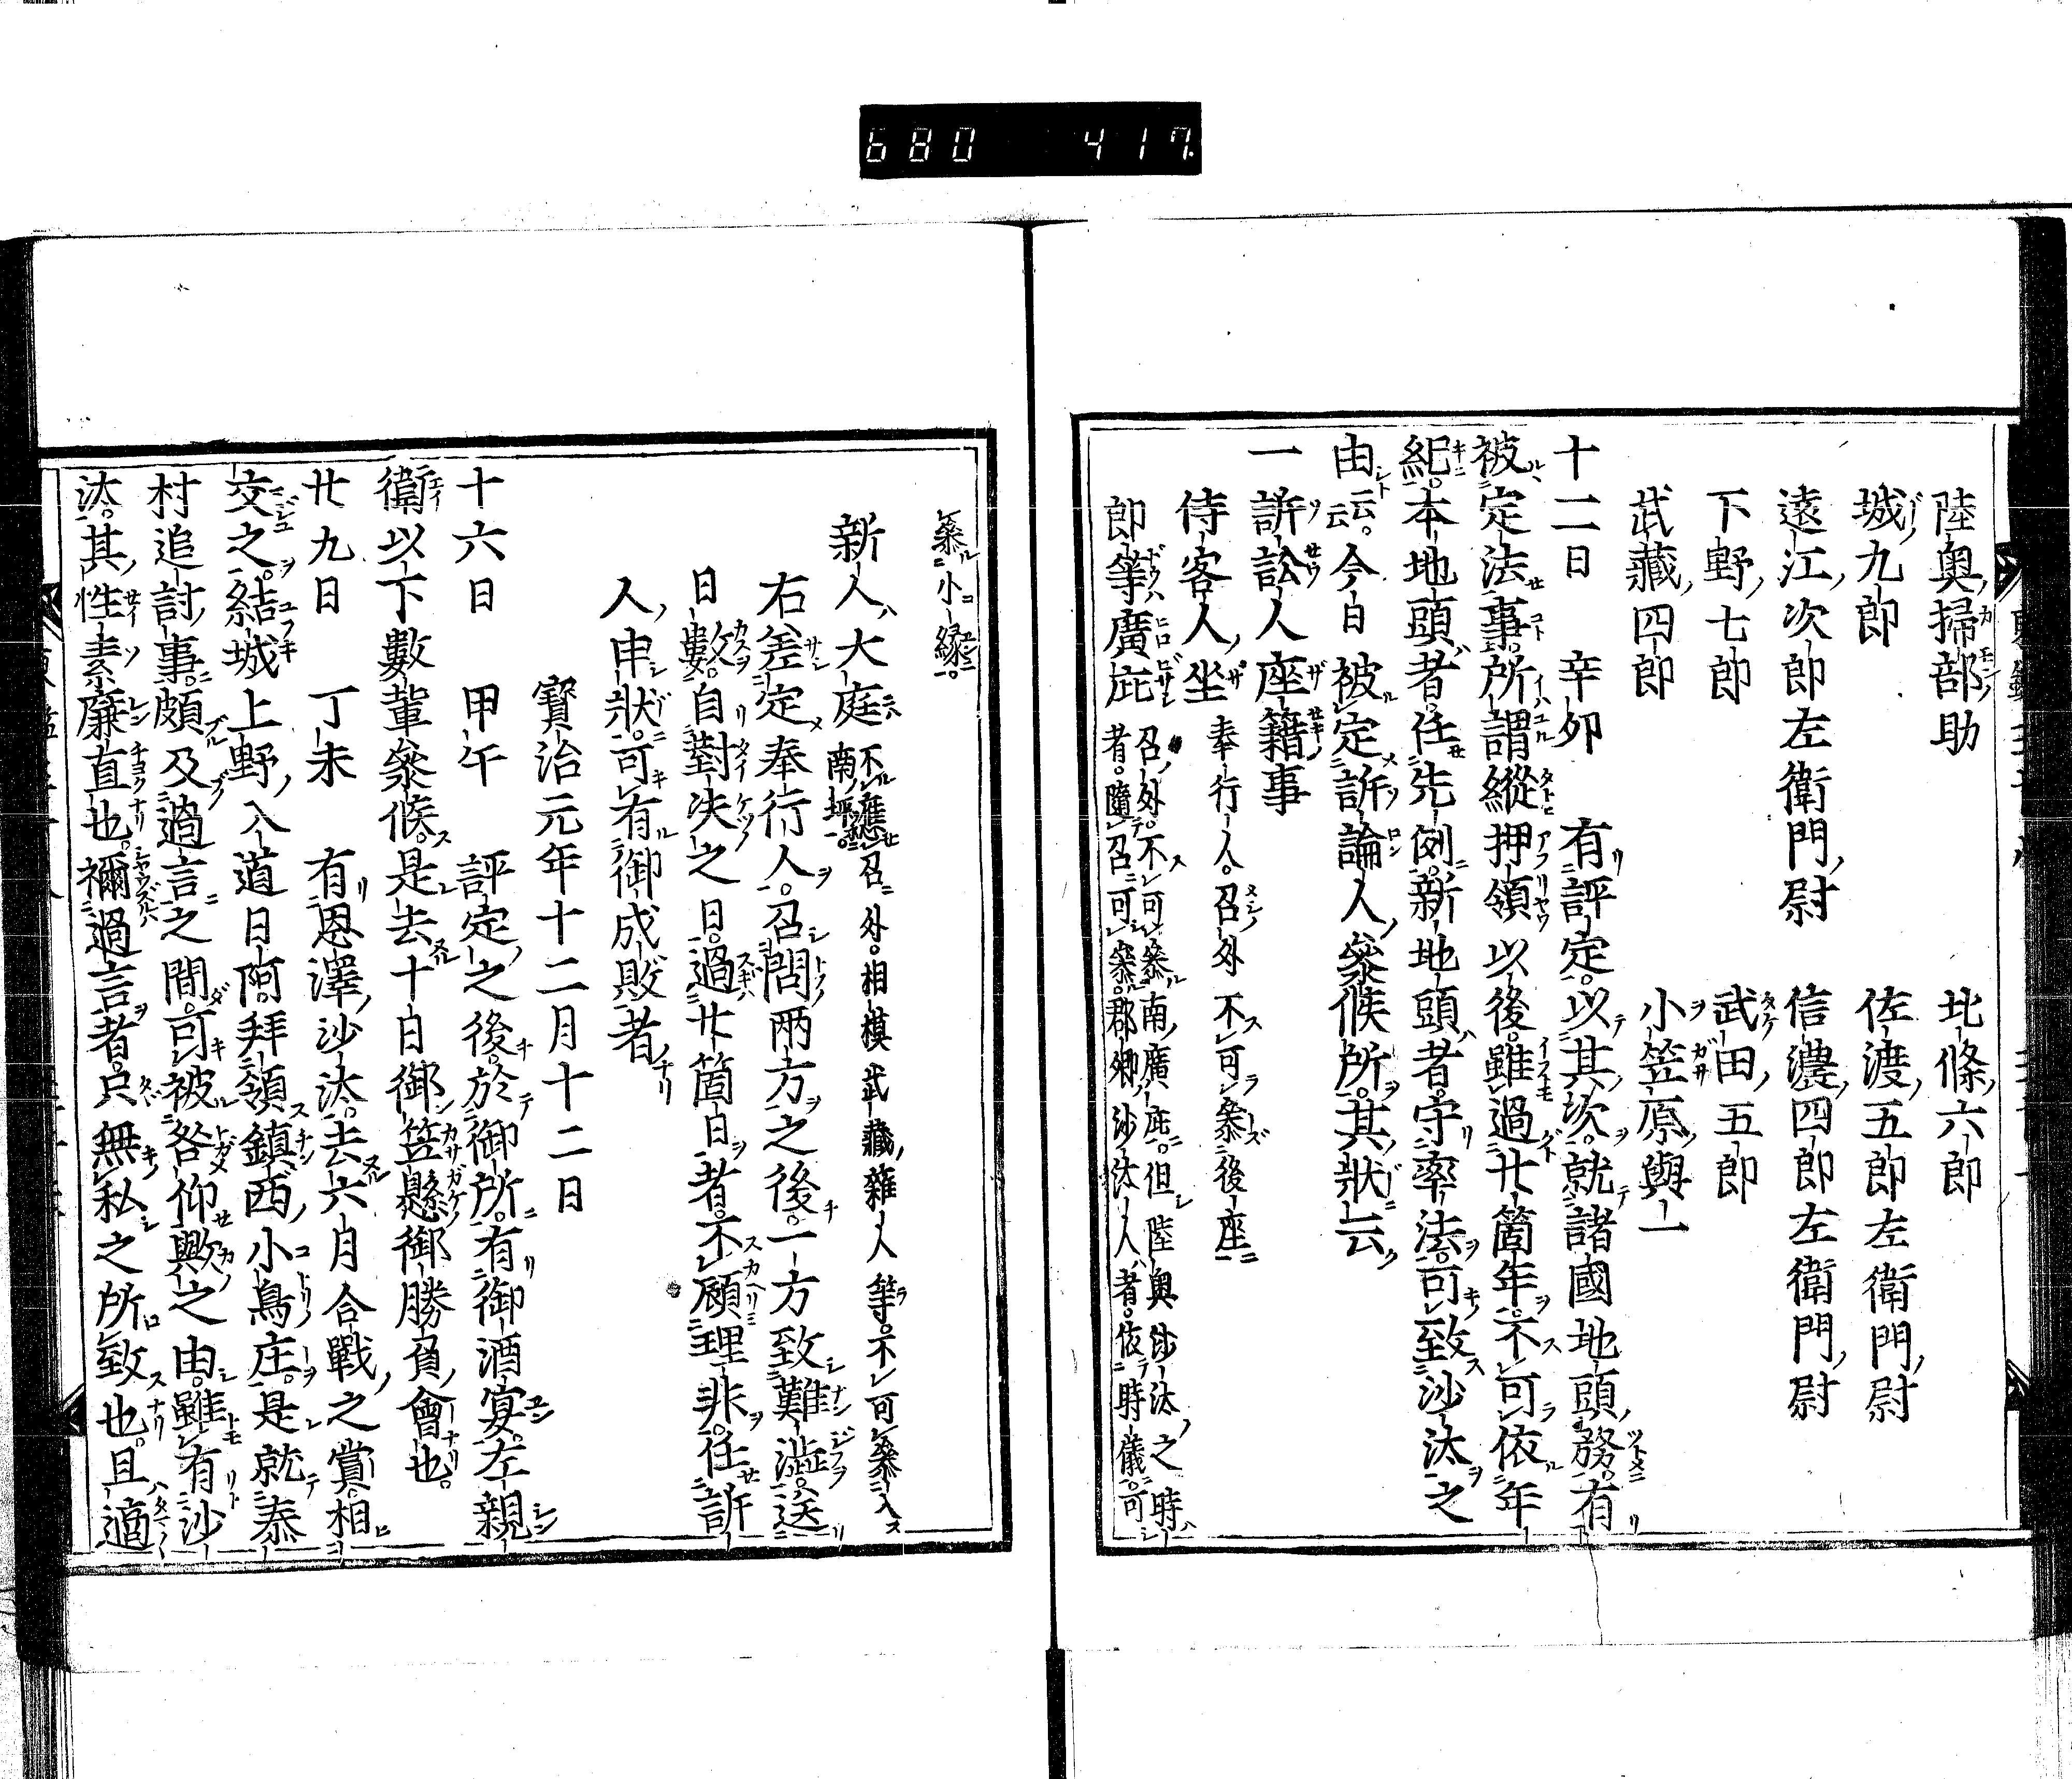 680 417
陸奧掃部助 北條六郎
城九郎 佐渡五郎左衛門尉
遠江次郎左衛門尉 信濃四郎左衛門尉
下野七郎 武田五郎
武藏四郎 小笠原與一
十二日 辛卯 有評定。以其次。就諸國地頭務。有
被定法事。所謂縱押領以後。雖過廿箇年。不可依年
紀。本地頭者。任先例。新地頭者。守率法。可致沙汰之
由云云。今日被定訴論人參候所。其狀云
一 訴訟人座籍事
侍客人坐 奉行人。召外不可參後座
郎等廣庇 召外。不可參南廣庇。但陸奧沙汰之時
者。隨召可參。郡鄉沙汰人者。依時儀。可
參小緣。
新人大庭 不應召外。相模武藏雜人等。不可參入
南坪。
右差定奉行人。召問兩方之後。一方致難澁。送
日數。自對決之日。過廿箇日者。不顧理非。任訴
人申狀。可有御成敗者
寶治元年十二月十二日
十六日 甲午 評定之後。於御所。有御酒宴。左親
衛以下數輩參候。是去十日御笠懸御勝負會也。
廿九日 丁未 有恩澤沙汰。去六月合戰之賞。相
交之。結城上野入道日阿。拜領鎮西小鳥庄。是就泰
村追討事。頗及過言之間。可被咎仰歟之由。雖有沙
汰。其性素廉直也。禰過言者。只無私之所致也。且適